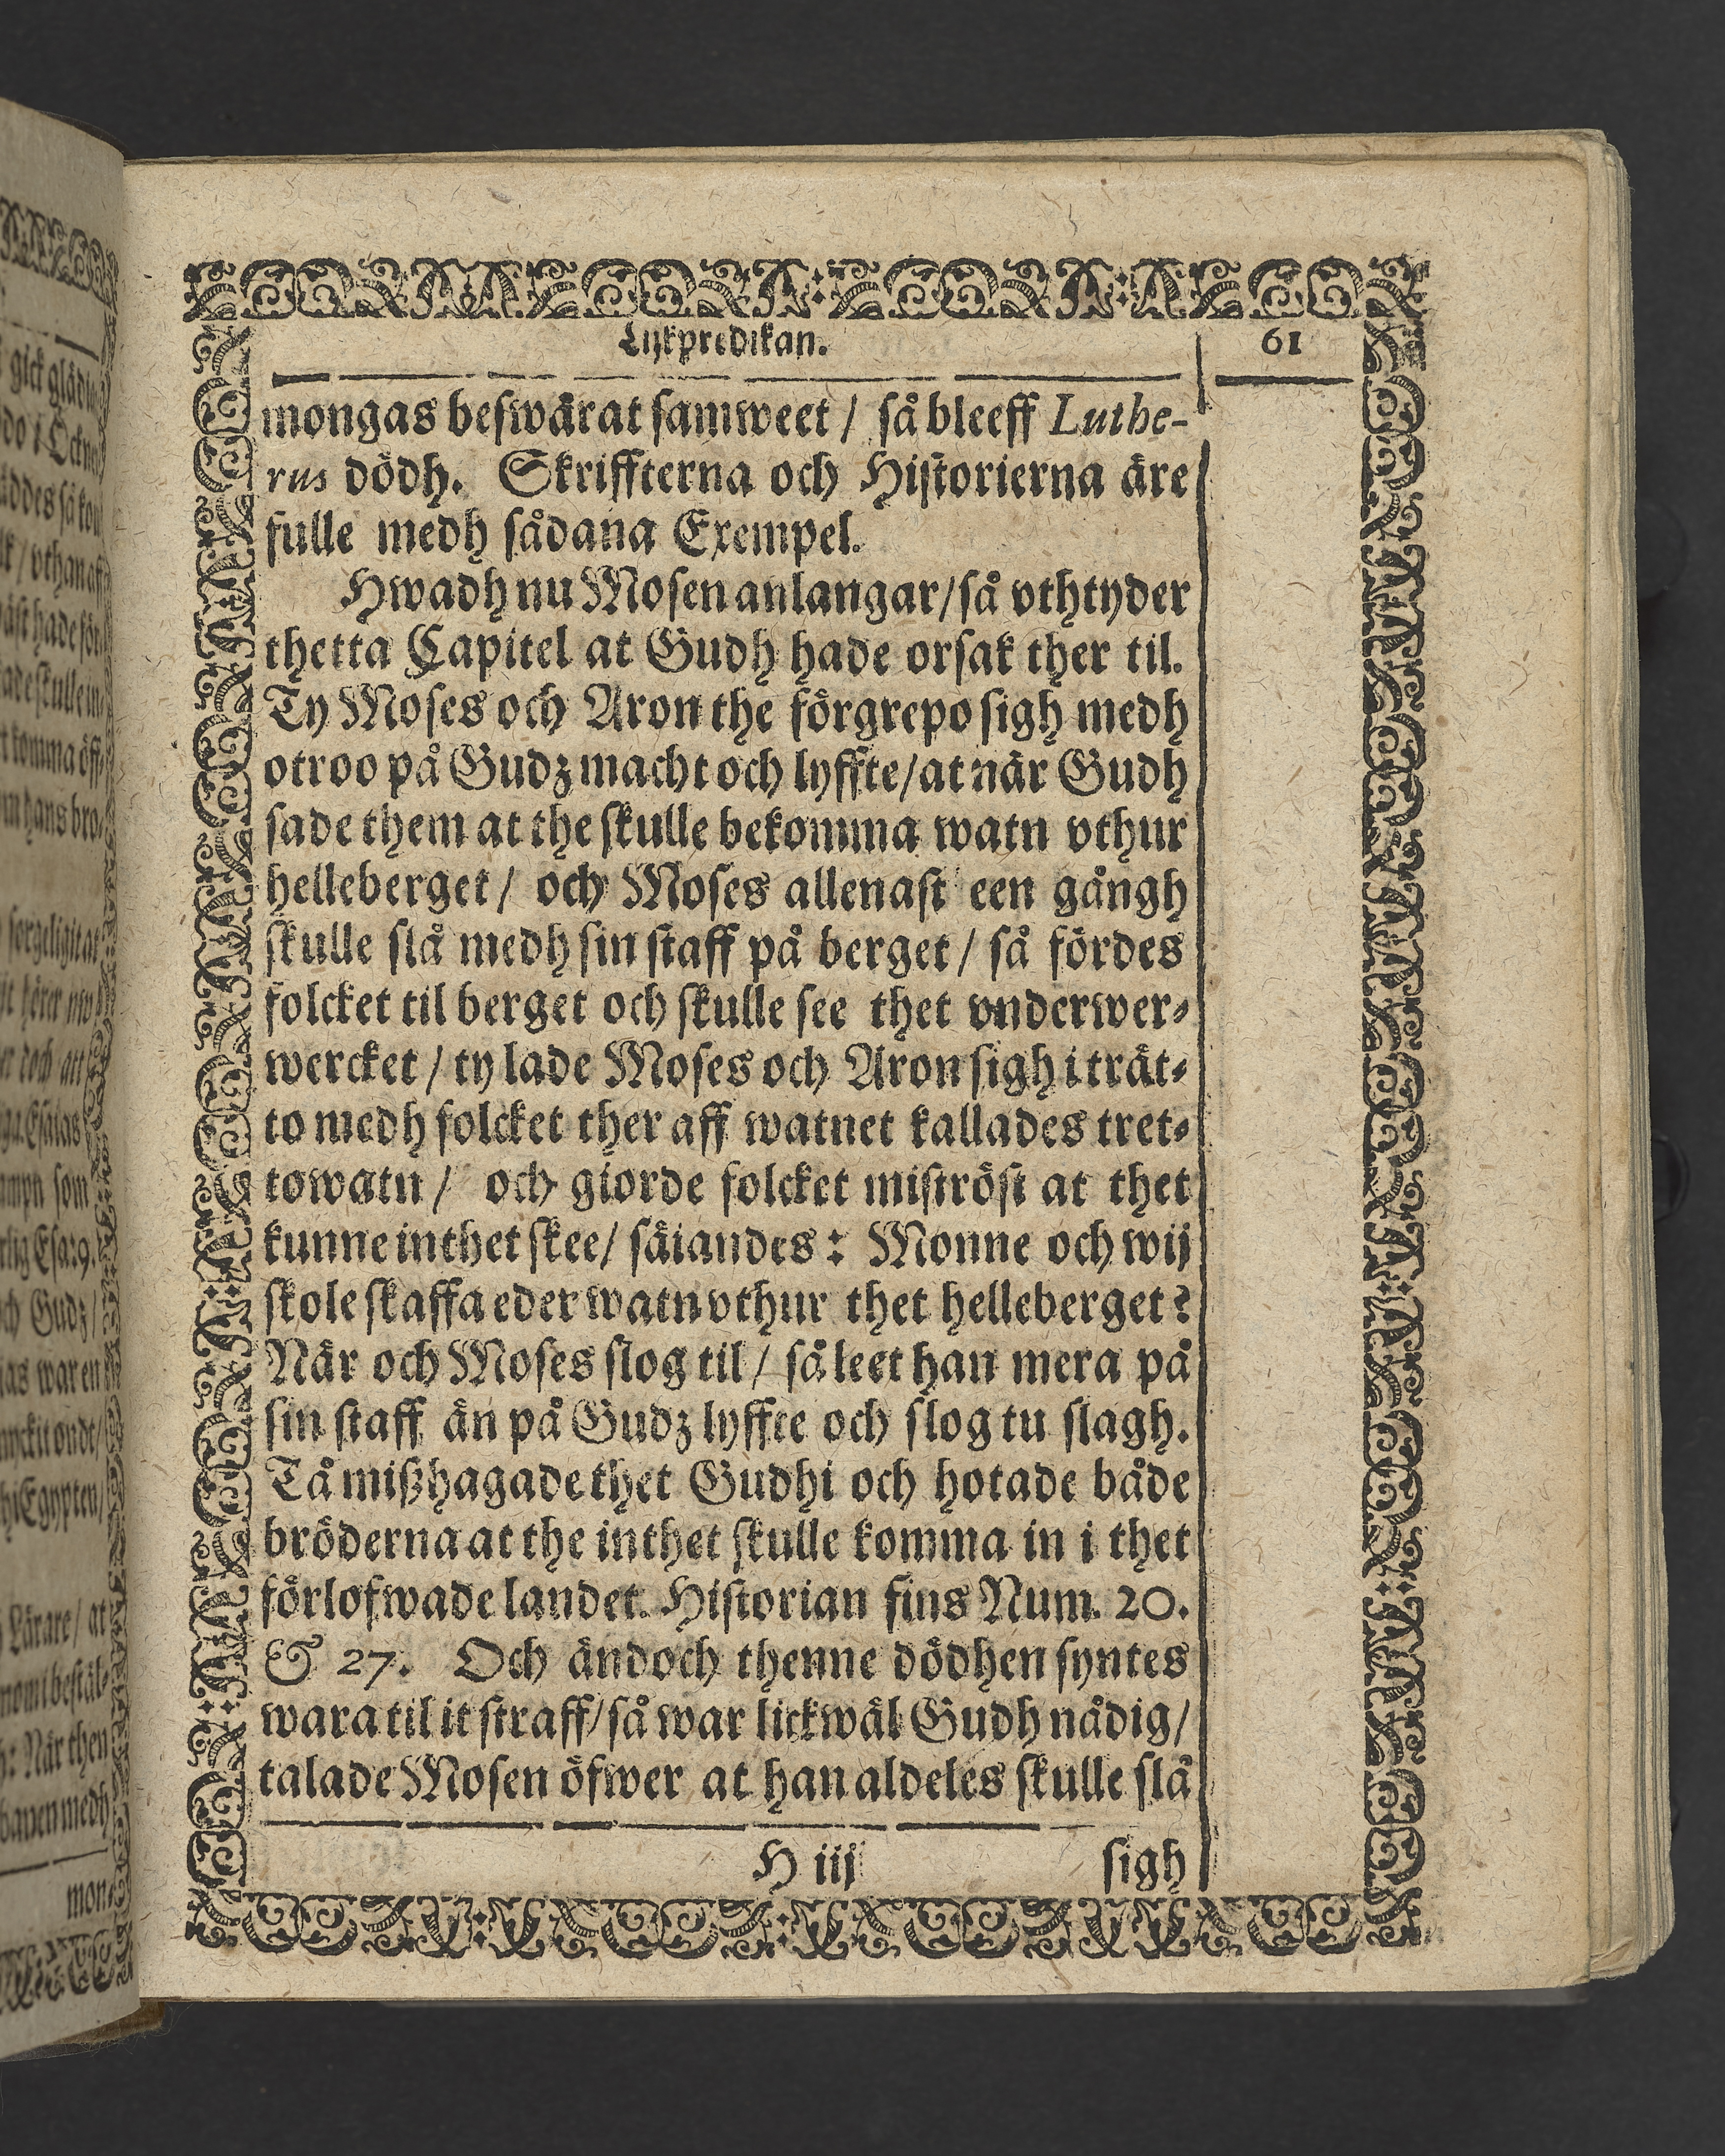 Lijkpredikan. 61
mongas beswärat samweet / så bleeff Luthe-
rus dödh. Skriffterna och Historierna äre
fulle medh sådana Exempel.
Hwadh nu Mosen anlangar/så vthtyder
thetta Capitel at Gudh hade orsak ther til.
Ty Moses och Aron the förgrepo sigh medh
otroo på Gudz macht och lyffte/at när Gudh
sade them at the skulle bekomma watn vthur
helleberget / och Moses allenast een gångh
skulle slå medh sin staff på berget / så fördes
folcket til berget och skulle see thet vnderwer-
wercket / ty lade Moses och Aron sigh i trät-
to medh folcket ther aff watnet kallades tret-
towatn / och giorde folcket miströst at thet
kunne inthet skee/ säiandes: Monne och wij
skole skaffa eder watn vthur thet helleberget?
När och Moses slog til / så leet han mera på
sin staff än på Gudz lyffte och slog tu slagh.
Tå mißhagade thet Gudhi och hotade både
bröderna at the inthet skulle komma in i thet
förlofwade landet. Historian fins Num. 20.
& 27. Och ändoch thenne dödhen syntes
wara til it straff/så war lickwäl Gudh nådig/
talade Mosen öfwer at han aldeles skulle slå
H iij sigh